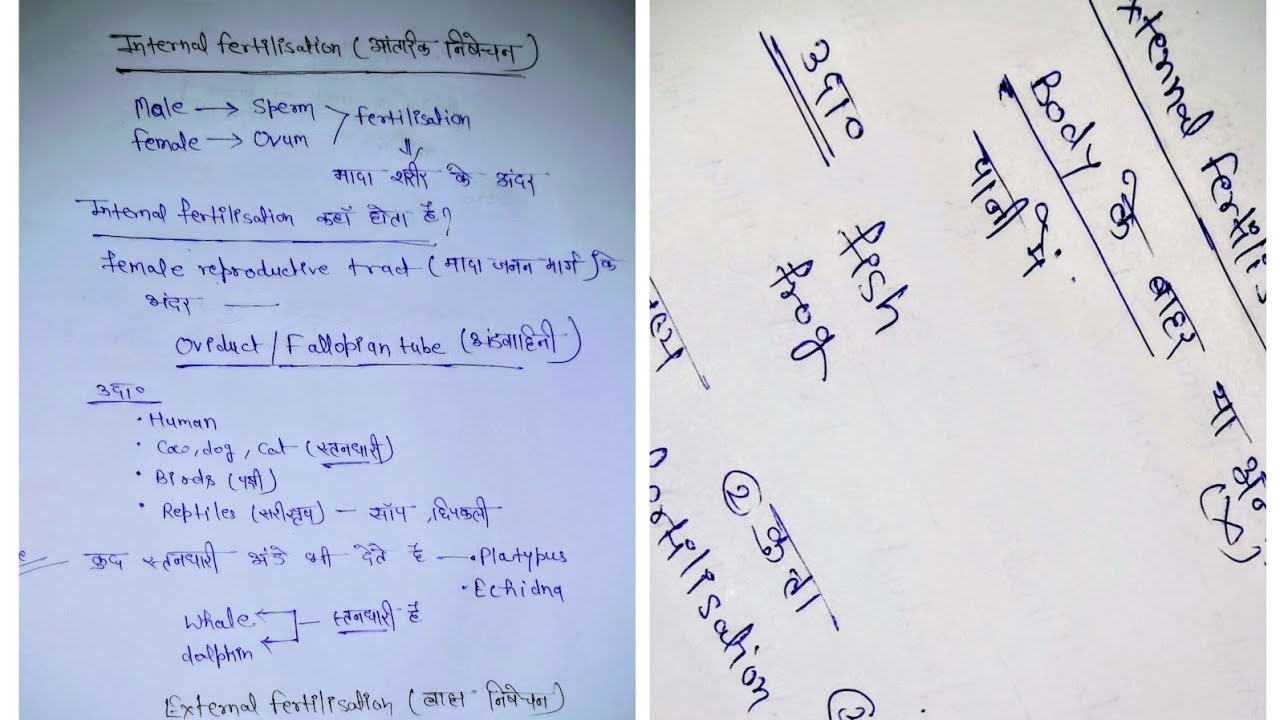 Internal fertilisation (आंतरिक निषेचन)
Male → Sperm
female → Ovum
fertilisation
⇓
मादा शरीर के अंदर
Internal fertilisation कहाँ होता है?
female reproductive tract (मादा जनन मार्ग) कि
अंदर —
Oviduct / Fallopian tube (अंडवाहिनी)
उदा०
• Human
• Cow, dog, cat (स्तनधारी)
• Birds (पक्षी)
• Reptiles (सरीसृप) – साँप, छिपकली
कुछ स्तनधारी अंडे भी देते है — • Platypus
• Echidna
whale
dolphin
स्तनधारी है
External fertilisation (बाह्य निषेचन)
xternal fertilis
Body के बाहर या
(X)
पानी में
उदा०
fish
frog
② कुत्ता
fertilisation